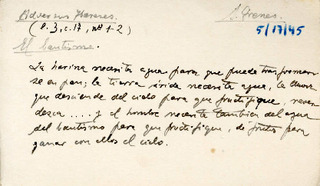 Adversus Haereses. S. Ireneo.
(l. 3, c. 17, nº 1-2) 5/17/45
El bautismo.
La harina necesita agua para que pueda transformar
se en pan; la tierra árida necesita agua, la lluvia
que desciende del cielo para que fructifique,
... y el hombre necesita también del agua
del bautismo para que fructifique, dé frutos para
ganar con ellos el cielo.